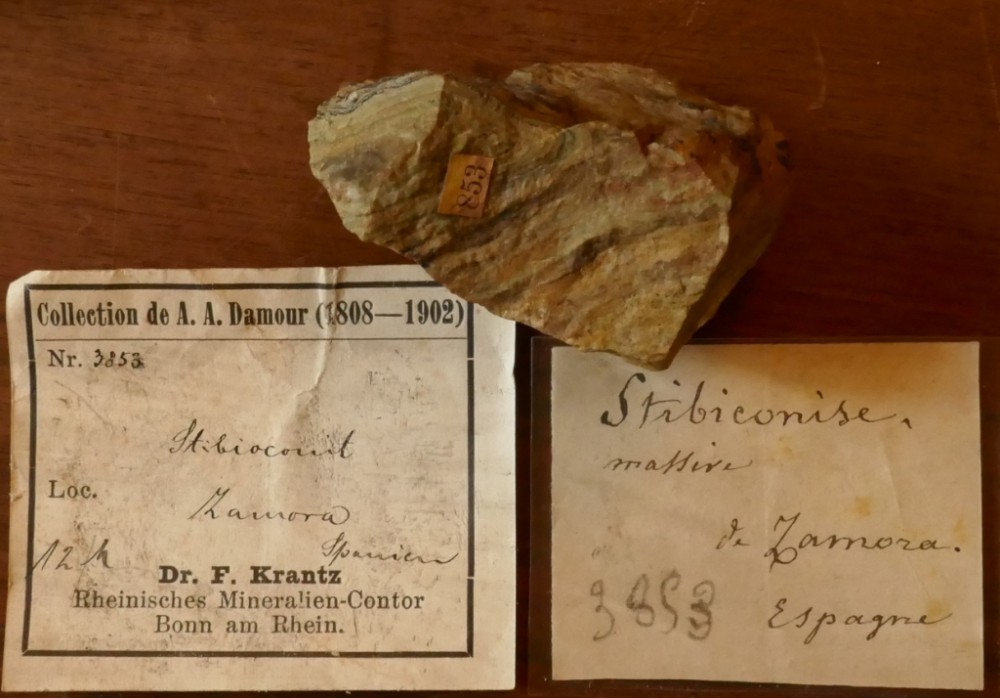 853
Collection de A. A. Damour (1808—1902)
Nr. 3853
Stibioconit
Loc.
Zamora
Spanien
12 h
Dr. F. Krantz
Rheinisches Mineralien-Contor
Bonn am Rhein.
Stibiconise.
massive
de Zamora.
3853
Espagne